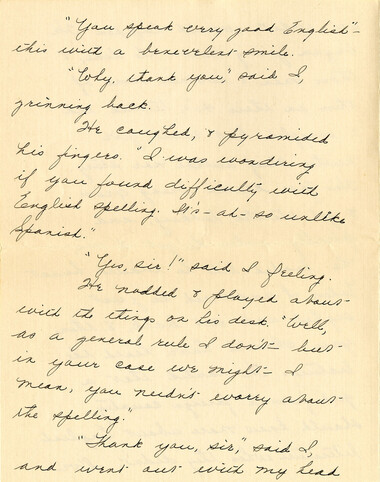 "You speak very good English"-
this with a benevelent smile.
"Why, thank you," said I,
grinning back.
He coughed, & pyramided
his fingers. "I was wondering
if you found difficulty with
English spelling. It's - ah - so unlike
Spanish."
"Yes, sir!" said I feeling.
He nodded & played about
with the things on his desk. "Well,
as a general rule I don't - but
in your case we might - I
mean, you needn't worry about
the spelling."
"Thank you, sir," said I,
and went out with my head